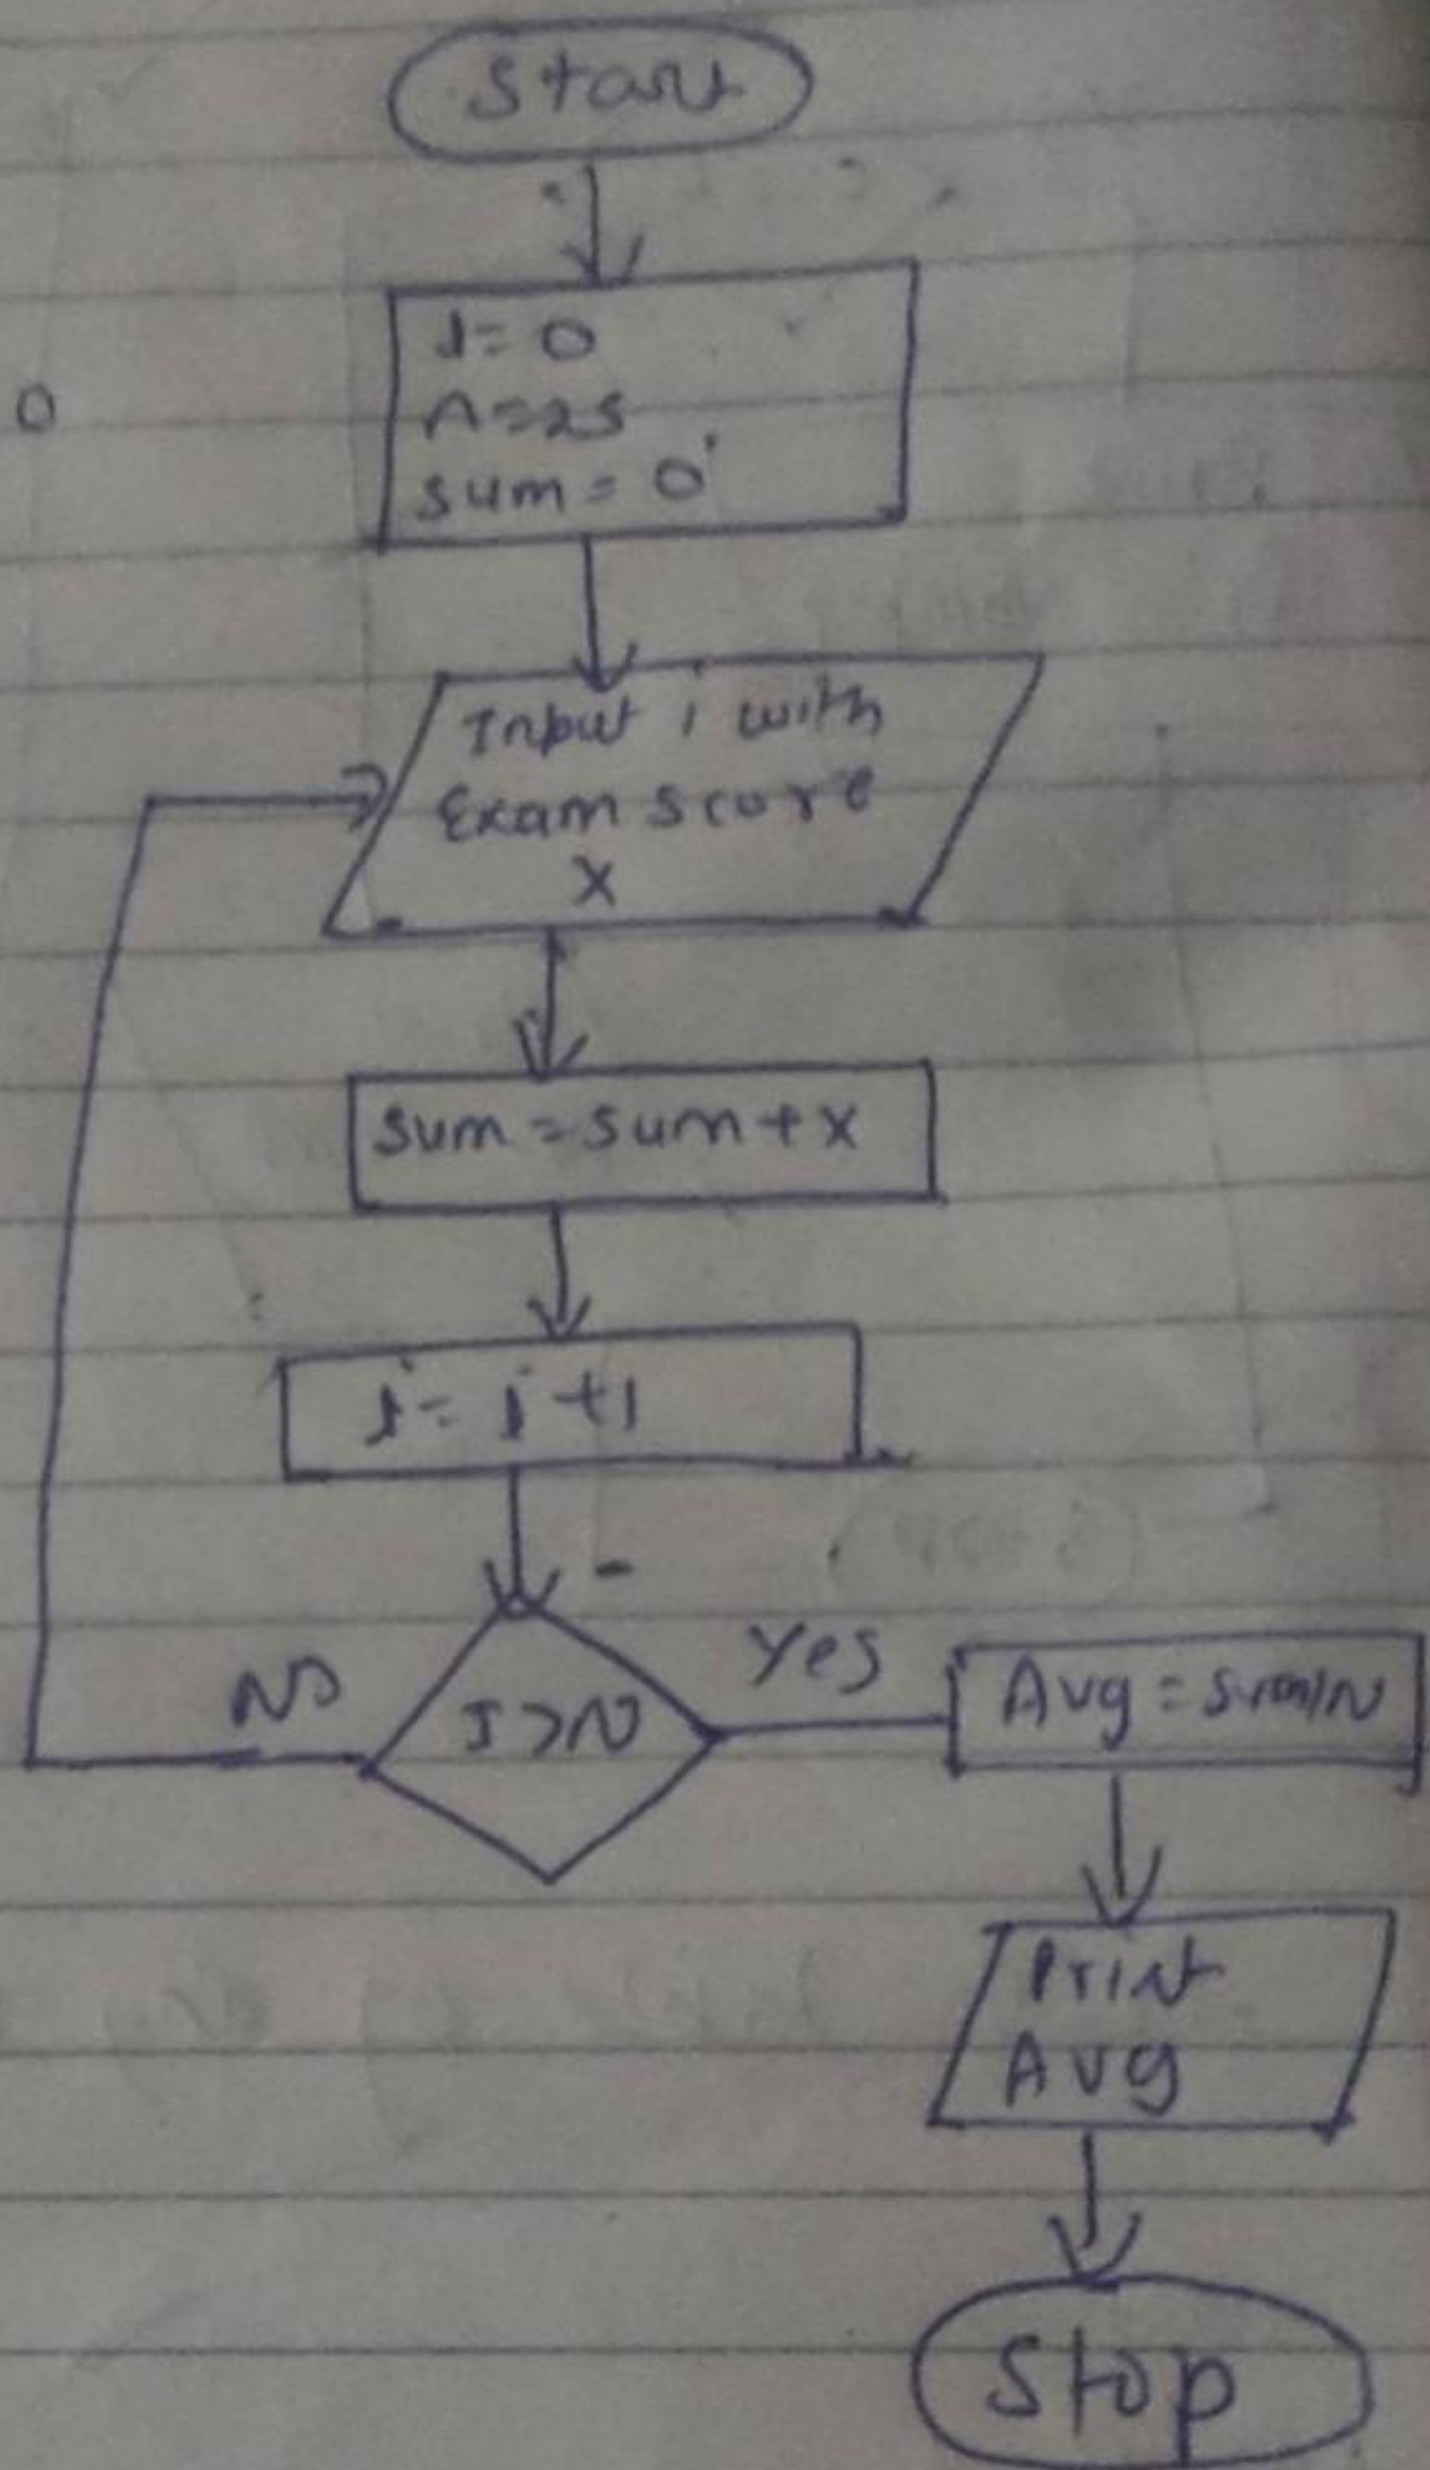 Start
i = 0
n = 25
sum = 0
0
Input i with
Exam score
X
sum = sum + x
i = i + 1
I > N
No
Yes
Avg = sum/N
Print
Avg
Stop